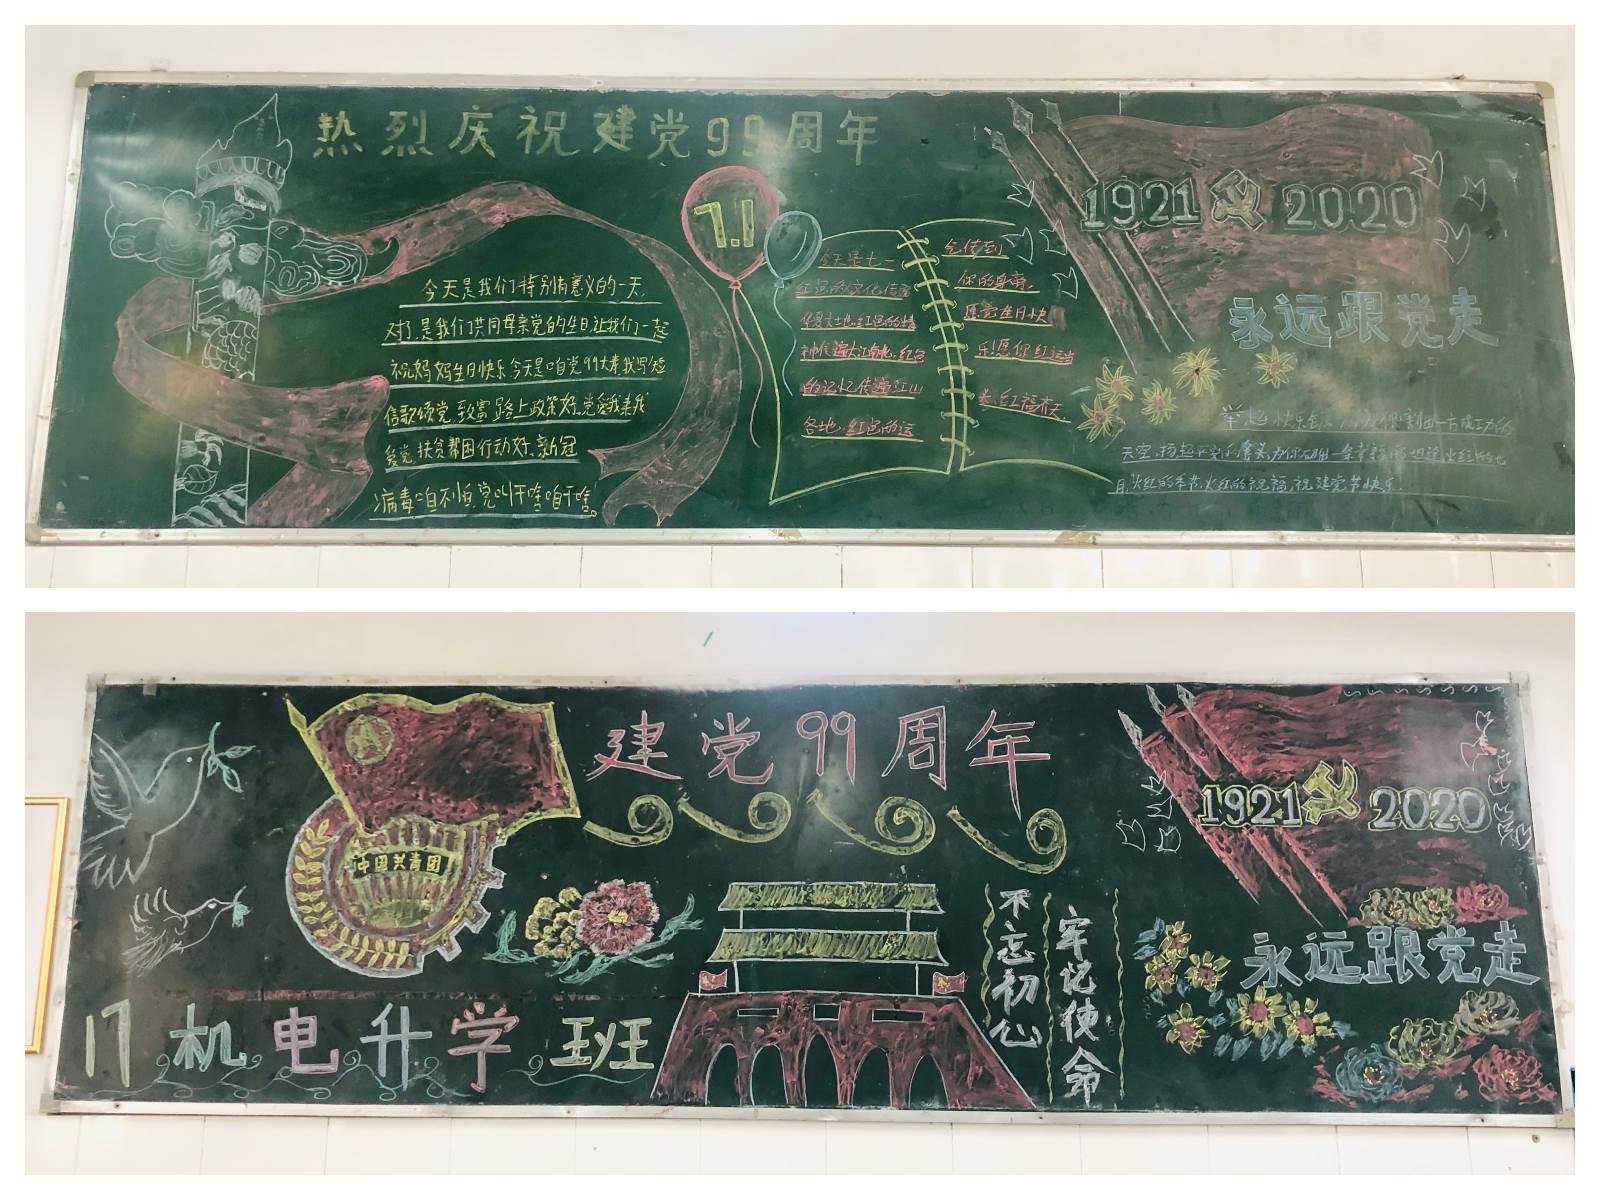 热烈庆祝建党99周年
7.1
今天是我们特别有意义的一天,
对了,是我们共同母亲党的生日,让我们一起
祝妈妈生日快乐,今天是咱党99大寿,我写短
信歌颂党,致富路上政策好,党爱我来我
爱党,扶贫帮困行动好,新冠
病毒咱不怕,党叫干啥咱干啥。
今天是七一
红色的文化传遍
华夏大地,红色的精
神传遍大江南北,红色
的记忆传遍江山
各地,红色的运
气传到
你的身旁,
愿党生日快
乐!愿你红运当
头,红福齐天
1921 2020
永远跟党走
举起快乐
天空,扬起
月,火红的季节,火红的祝福,祝建党节快乐.
建党99周年
中国共青团
17机电升学班
不忘初心
牢记使命
1921 2020
永远跟党走